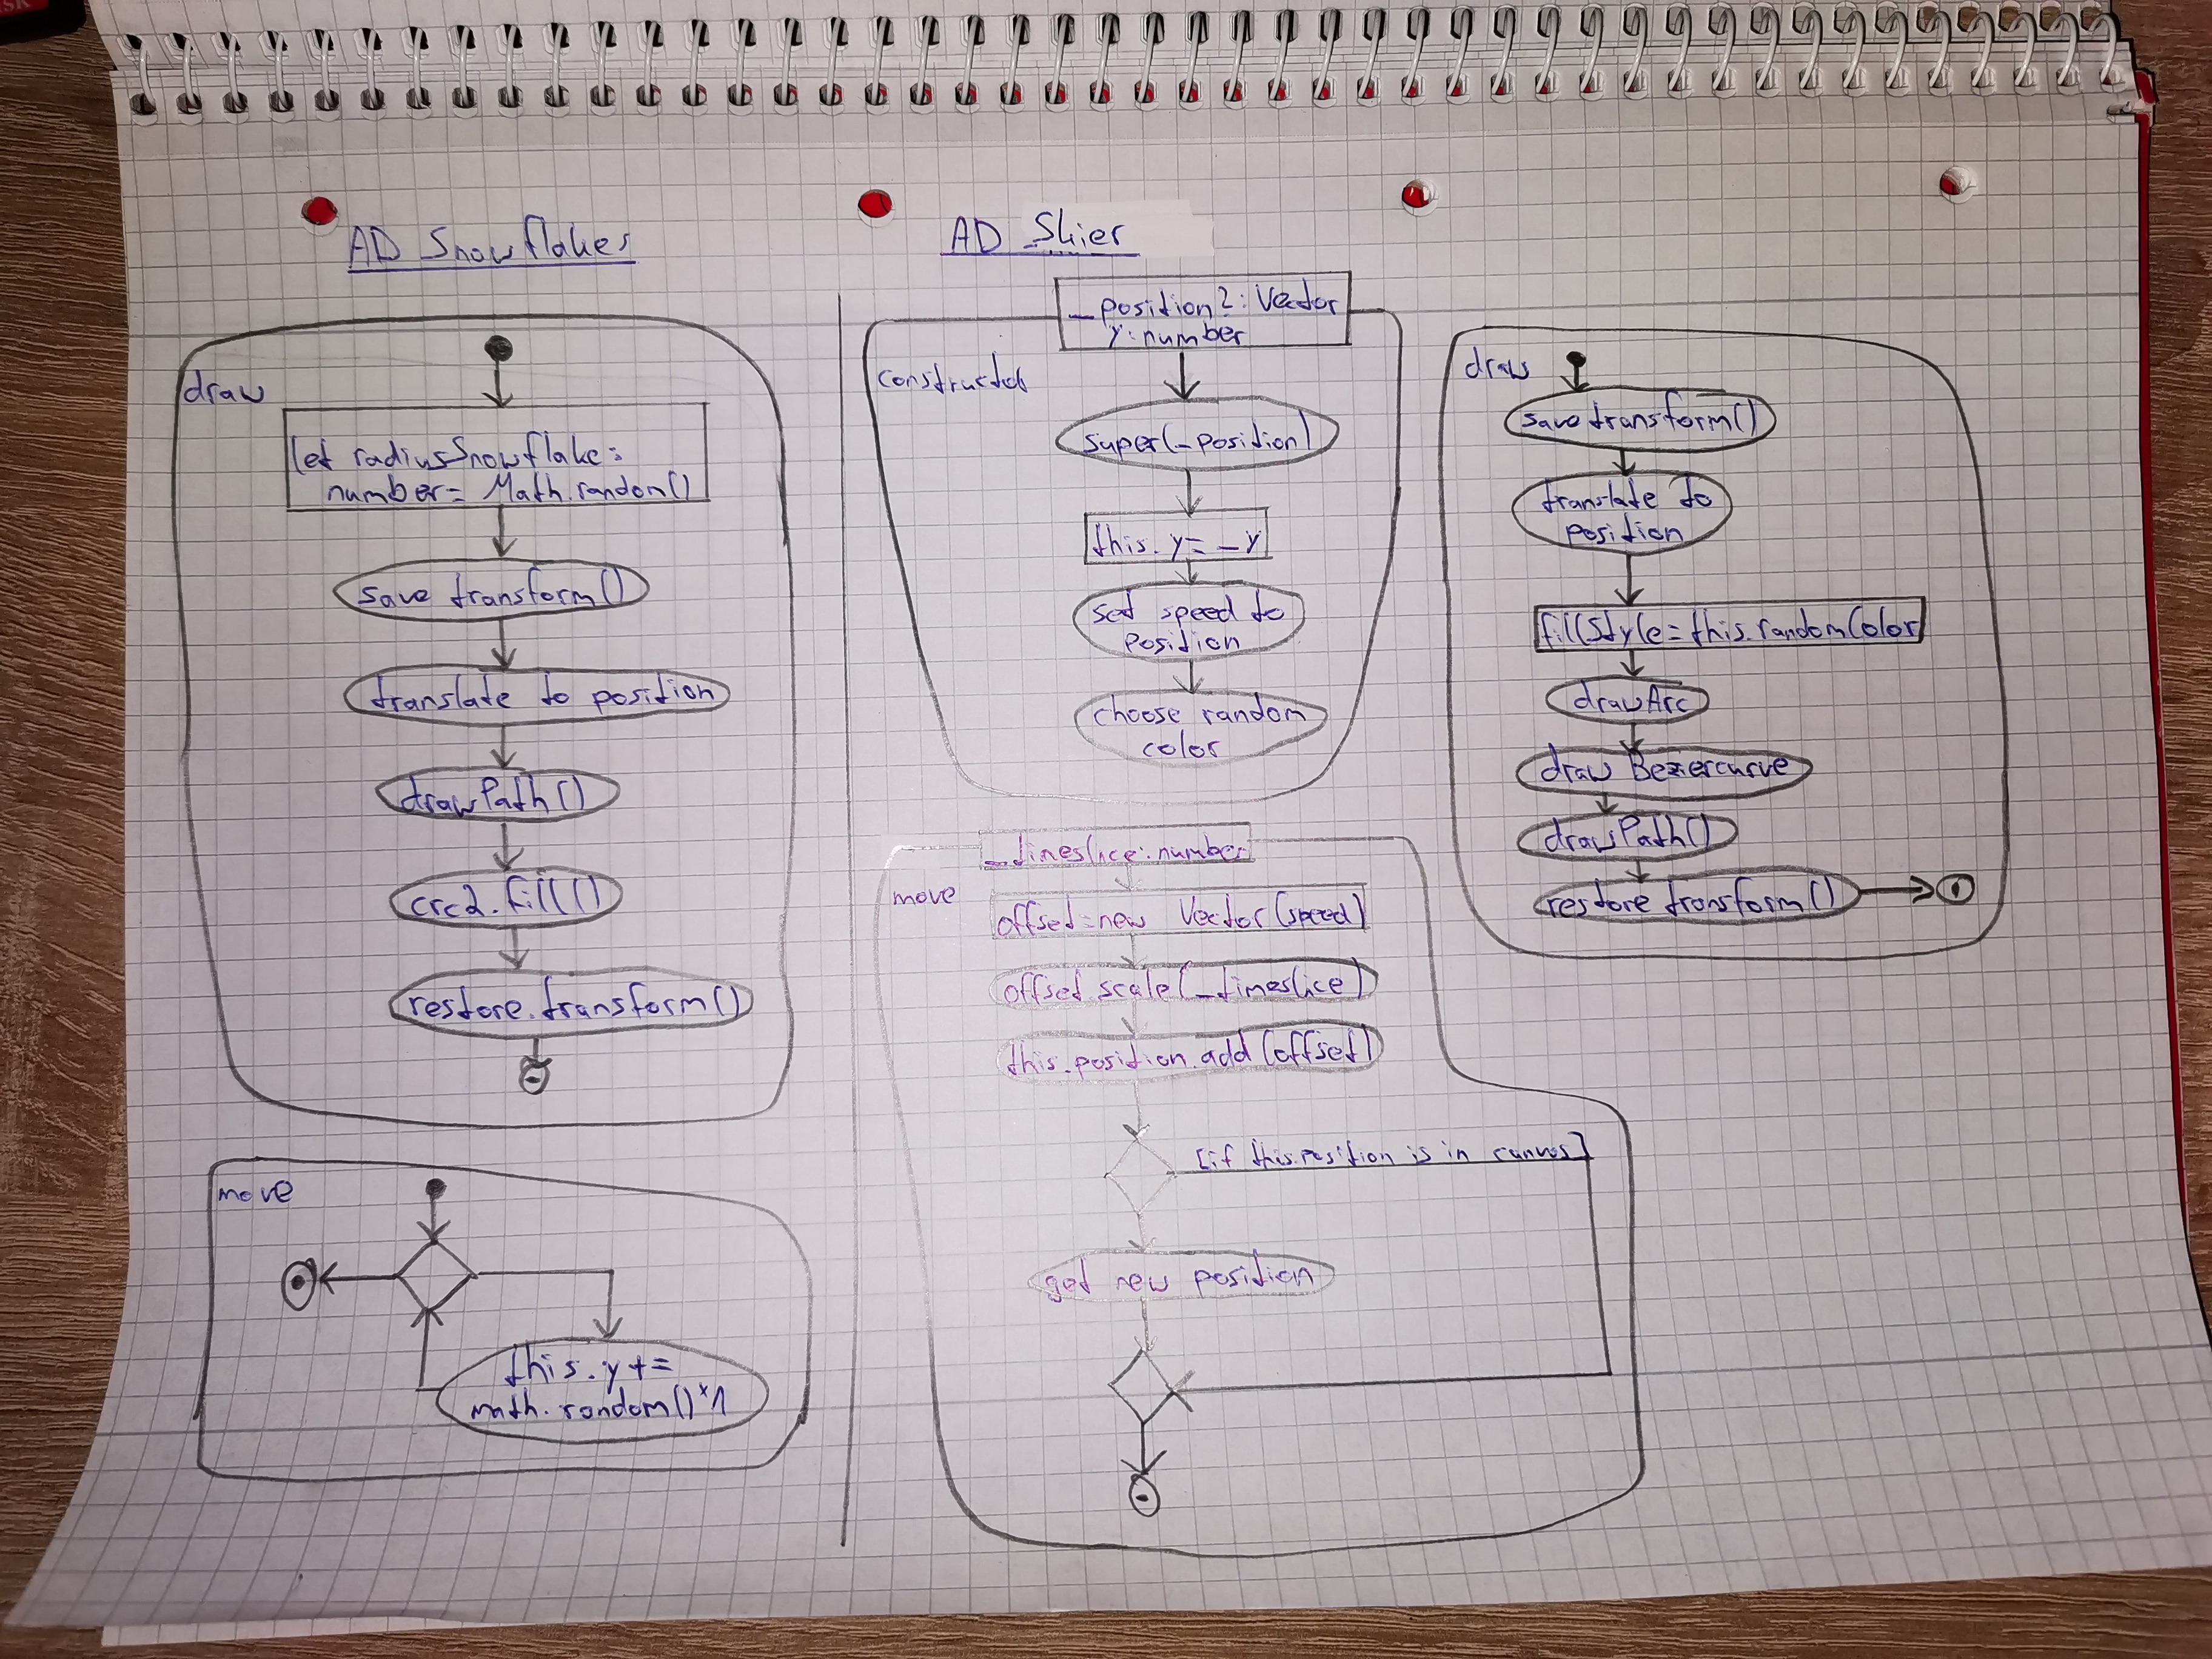 AD Snowflakes
draw
let radiusSnowflake:
number= Math.random()
save transform()
translate to position
drawPath()
crc2.fill()
restore.transform()
move
this.y +=
math.random()*1
AD Skier
_position?: Vector
y:number
constructor
super(_position)
this.y= _y
set speed to
position
choose random
color
_timeslice:number
move
offset=new Vector(speed)
offset.scale(_timeslice)
this.position.add(offset)
[if this.position is in canvas]
get new position
draw
save transform()
translate to
position
fillStyle=this.randomColor
drawArc
draw Beziercurve
drawPath()
restore transform()